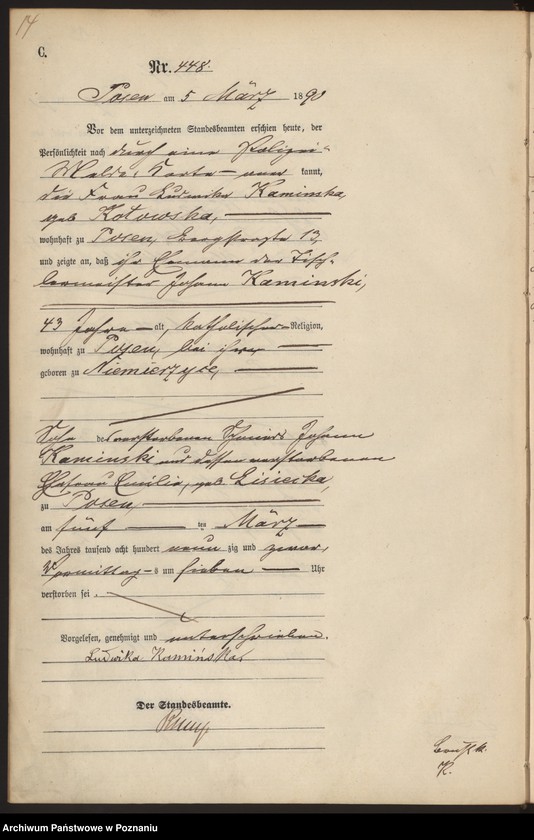 14
C.
Nr. 448.
Posen am 5 März 1890
Vor dem unterzeichneten Standesbeamten erschien heute, der
Persönlichkeit nach durch eine Polizei-
Melde-Karte aner kannt,
die Frau Ludwika Kaminska,
geb Kotowska,
wohnhaft zu Posen, 13,
und zeigte an, daß ihr Ehemann der Tisch-
lermeister Johann Kaminski,
43 Jahre alt, katholischer Religion,
wohnhaft zu Posen, bei ihr
geboren zu Niemierzyce,
Sohn des verstorbenen Johann
Kaminski und dessen verstorbenen
Ehefrau Emilie, geb Lisiecka,
zu Posen,
am fünf ten März
des Jahres tausend acht hundert neun zig und zwar,
Vormittags um sieben Uhr
verstorben sei.
Vorgelesen, genehmigt und unterschrieben.
Ludwika Kamińska,
Der Standesbeamte.
K.
Archiwum Państwowe w Poznaniu